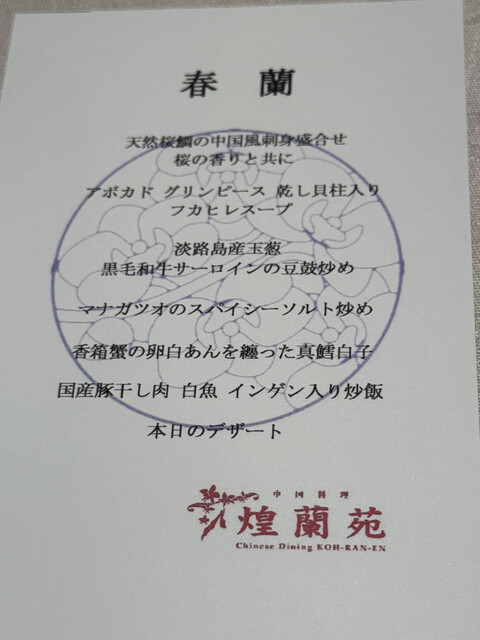 春 蘭
天然桜鯛の中国風刺身盛合せ
桜の香りと共に
アボカド グリンピース 乾し貝柱入り
フカヒレスープ
淡路島産玉葱
黒毛和牛サーロインの豆鼓炒め
マナガツオのスパイシーソルト炒め
香箱蟹の卵白あんを纏った真鱈白子
国産豚干し肉 白魚 インゲン入り炒飯
本日のデザート
中国料理
煌蘭苑
Chinese Dining KOH-RAN-EN